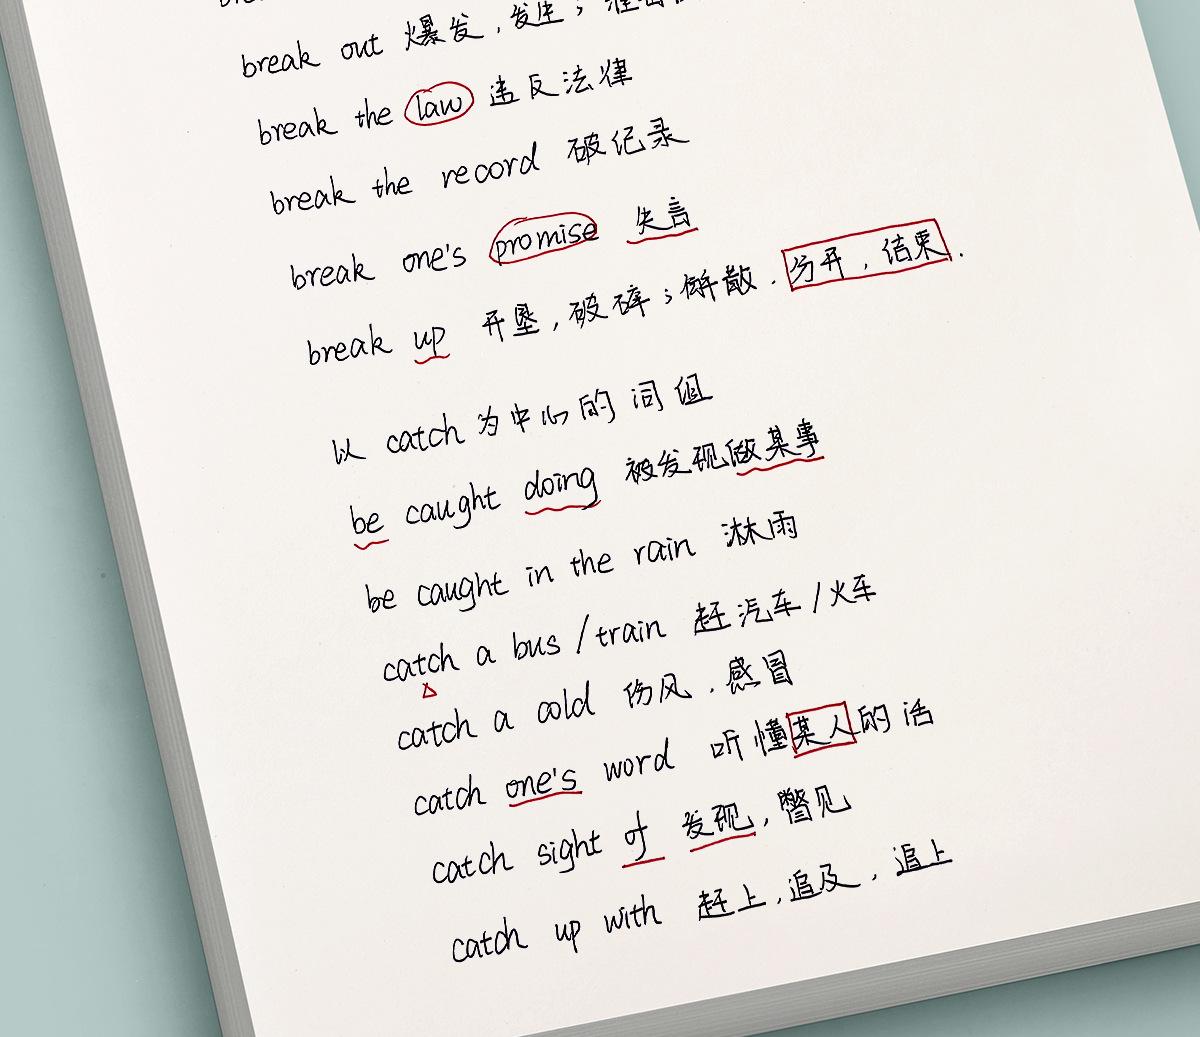 break out 爆发，发生；
break the law 违反法律
break the record 破纪录
break one's promise 失言
break up 开垦，破碎；解散．分开，结束．
以 catch 为中心的词组
be caught doing 被发现做某事
be caught in the rain 淋雨
catch a bus / train 赶汽车 / 火车
catch a cold 伤风．感冒
catch one's word 听懂某人的话
catch sight of 发现，瞥见
catch up with 赶上，追及，追上